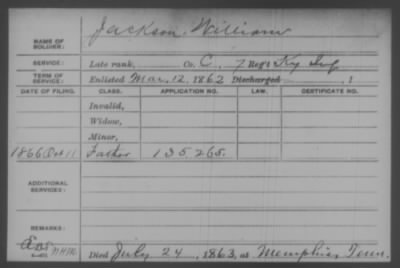 Jackson, William
NAME OF SOLDIER:
SERVICE: Late rank, Co. C, 7 Reg't Ky Inf
TERM OF SERVICE: Enlisted Mar. 12, 1862 Discharged , 1
DATE OF FILING. CLASS. APPLICATION NO. LAW. CERTIFICATE NO.
Invalid,
Widow,
Minor,
1866 Oct 11 Father 135265.
ADDITIONAL SERVICES:
REMARKS:
Died July 24, 1863, at Memphis, Tenn.